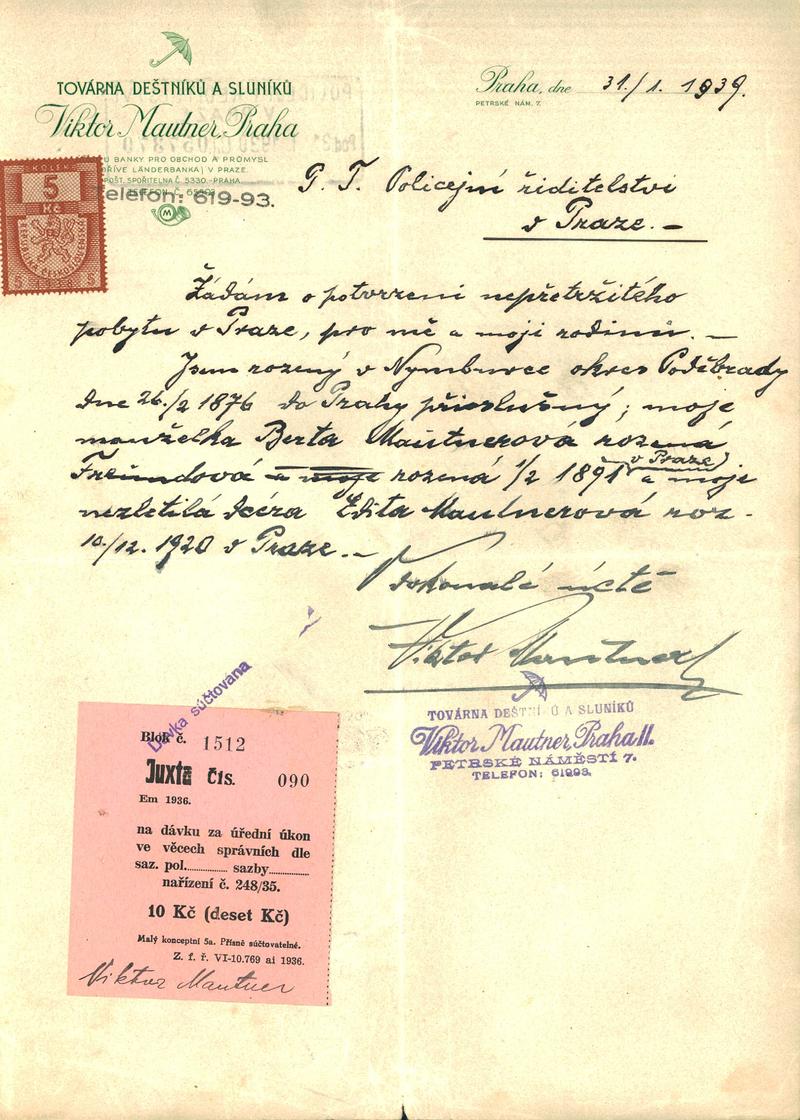 TOVÁRNA DEŠTNÍKŮ A SLUNÍKŮ
Viktor Mautner, Praha
U BANKY PRO OBCHOD A PRŮMYSL
DŘÍVE LÄNDERBANKA) V PRAZE.
POŠT. SPOŘITELNA Č. 5330 - PRAHA.
telefon: 619-93.
M
Praha, dne 31./1. 1939.
PETRSKÉ NÁM. 7.
KOLEK
5
Kč
REPUBLIKA ČESKOSLOVENSKÁ
5 5
P. T. Policejní ředitelství
v Praze. -
Žádám o potvrzení nepřetržitého
pobytu v Praze, pro mě a moji rodinu. -
Jsem rozený v Nymburce okres Poděbrady
dne 26./2 1876 do Prahy příslušný; moje
manželka Berta Mautnerová rozená
Freundová a moje rozená 1/2 1891 (v Praze) a moje
nezletilá dcéra Edita Mautnerová roz-
10/12. 1920 v Praze. -
V dokonalé úctě
Viktor Mautner
TOVÁRNA DEŠTNÍKŮ A SLUNÍKŮ
Viktor Mautner, Praha II.
PETRSKÉ NÁMĚSTÍ 7.
TELEFON: 61993.
Dávka súčtována
Blok č. 1512
Juxta čís. 090
Em 1936.
na dávku za úřední úkon
ve věcech správních dle
saz. pol. ............ sazby ............
nařízení č. 248/35.
10 Kč (deset Kč)
Malý konceptní 5a. Přísně súčtovatelné.
Z. f. ř. VI-10.769 ai 1936.
Viktor Mautner